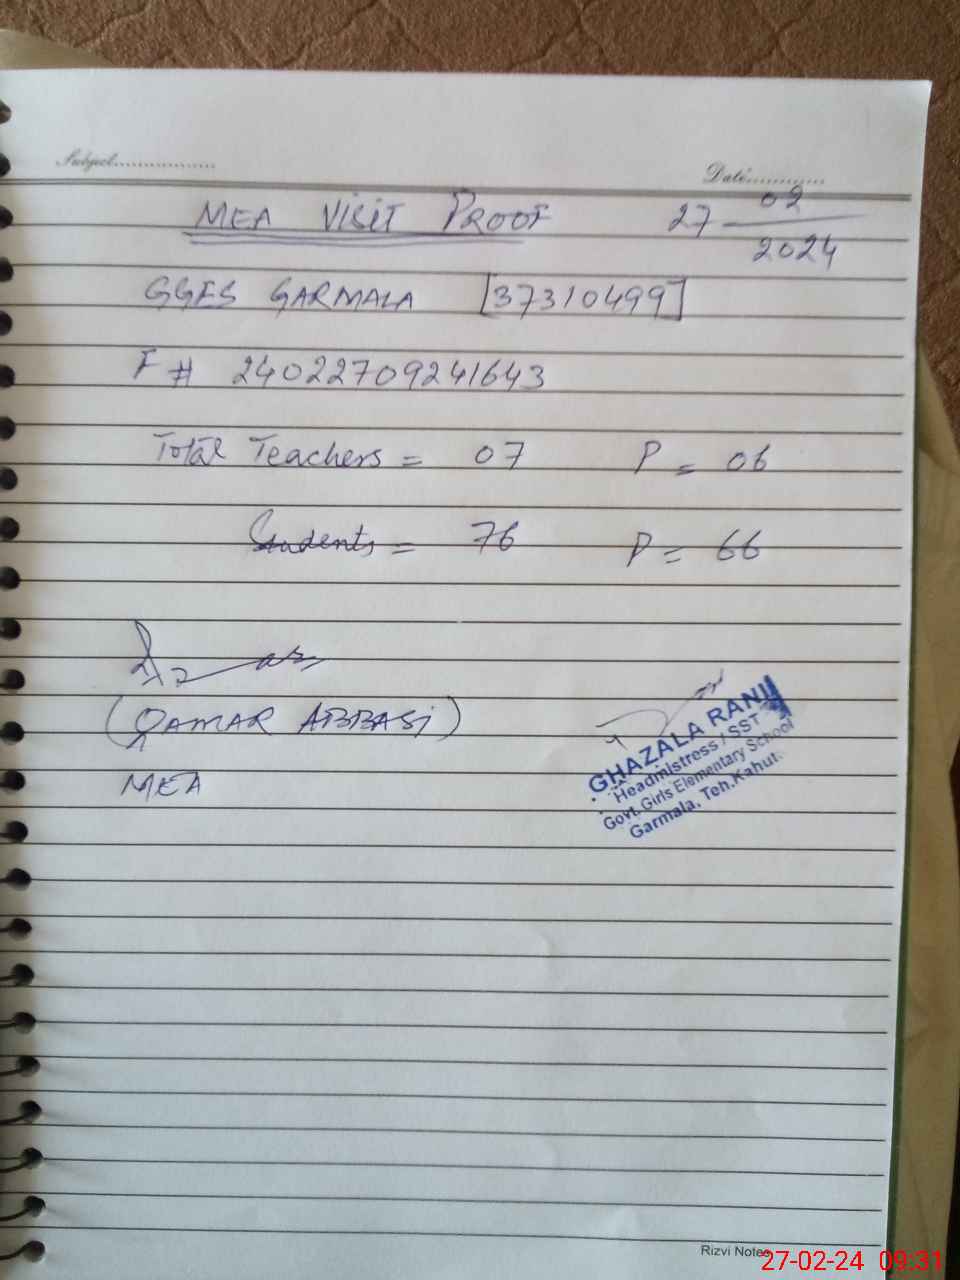 Subject................
Date............
MEA VISIT PROOF 27 - 02/2024
GGES GARMALA [37310499]
F # 24022709241643
Total Teachers = 07 P = 06
Students = 76 P = 66
(QAMAR ABBASi)
MEA
GHAZALA RANI
Headmistress / SST
Govt. Girls Elementary School
Garmala, Teh.Kahut
Rizvi Notes
27-02-24 09:31